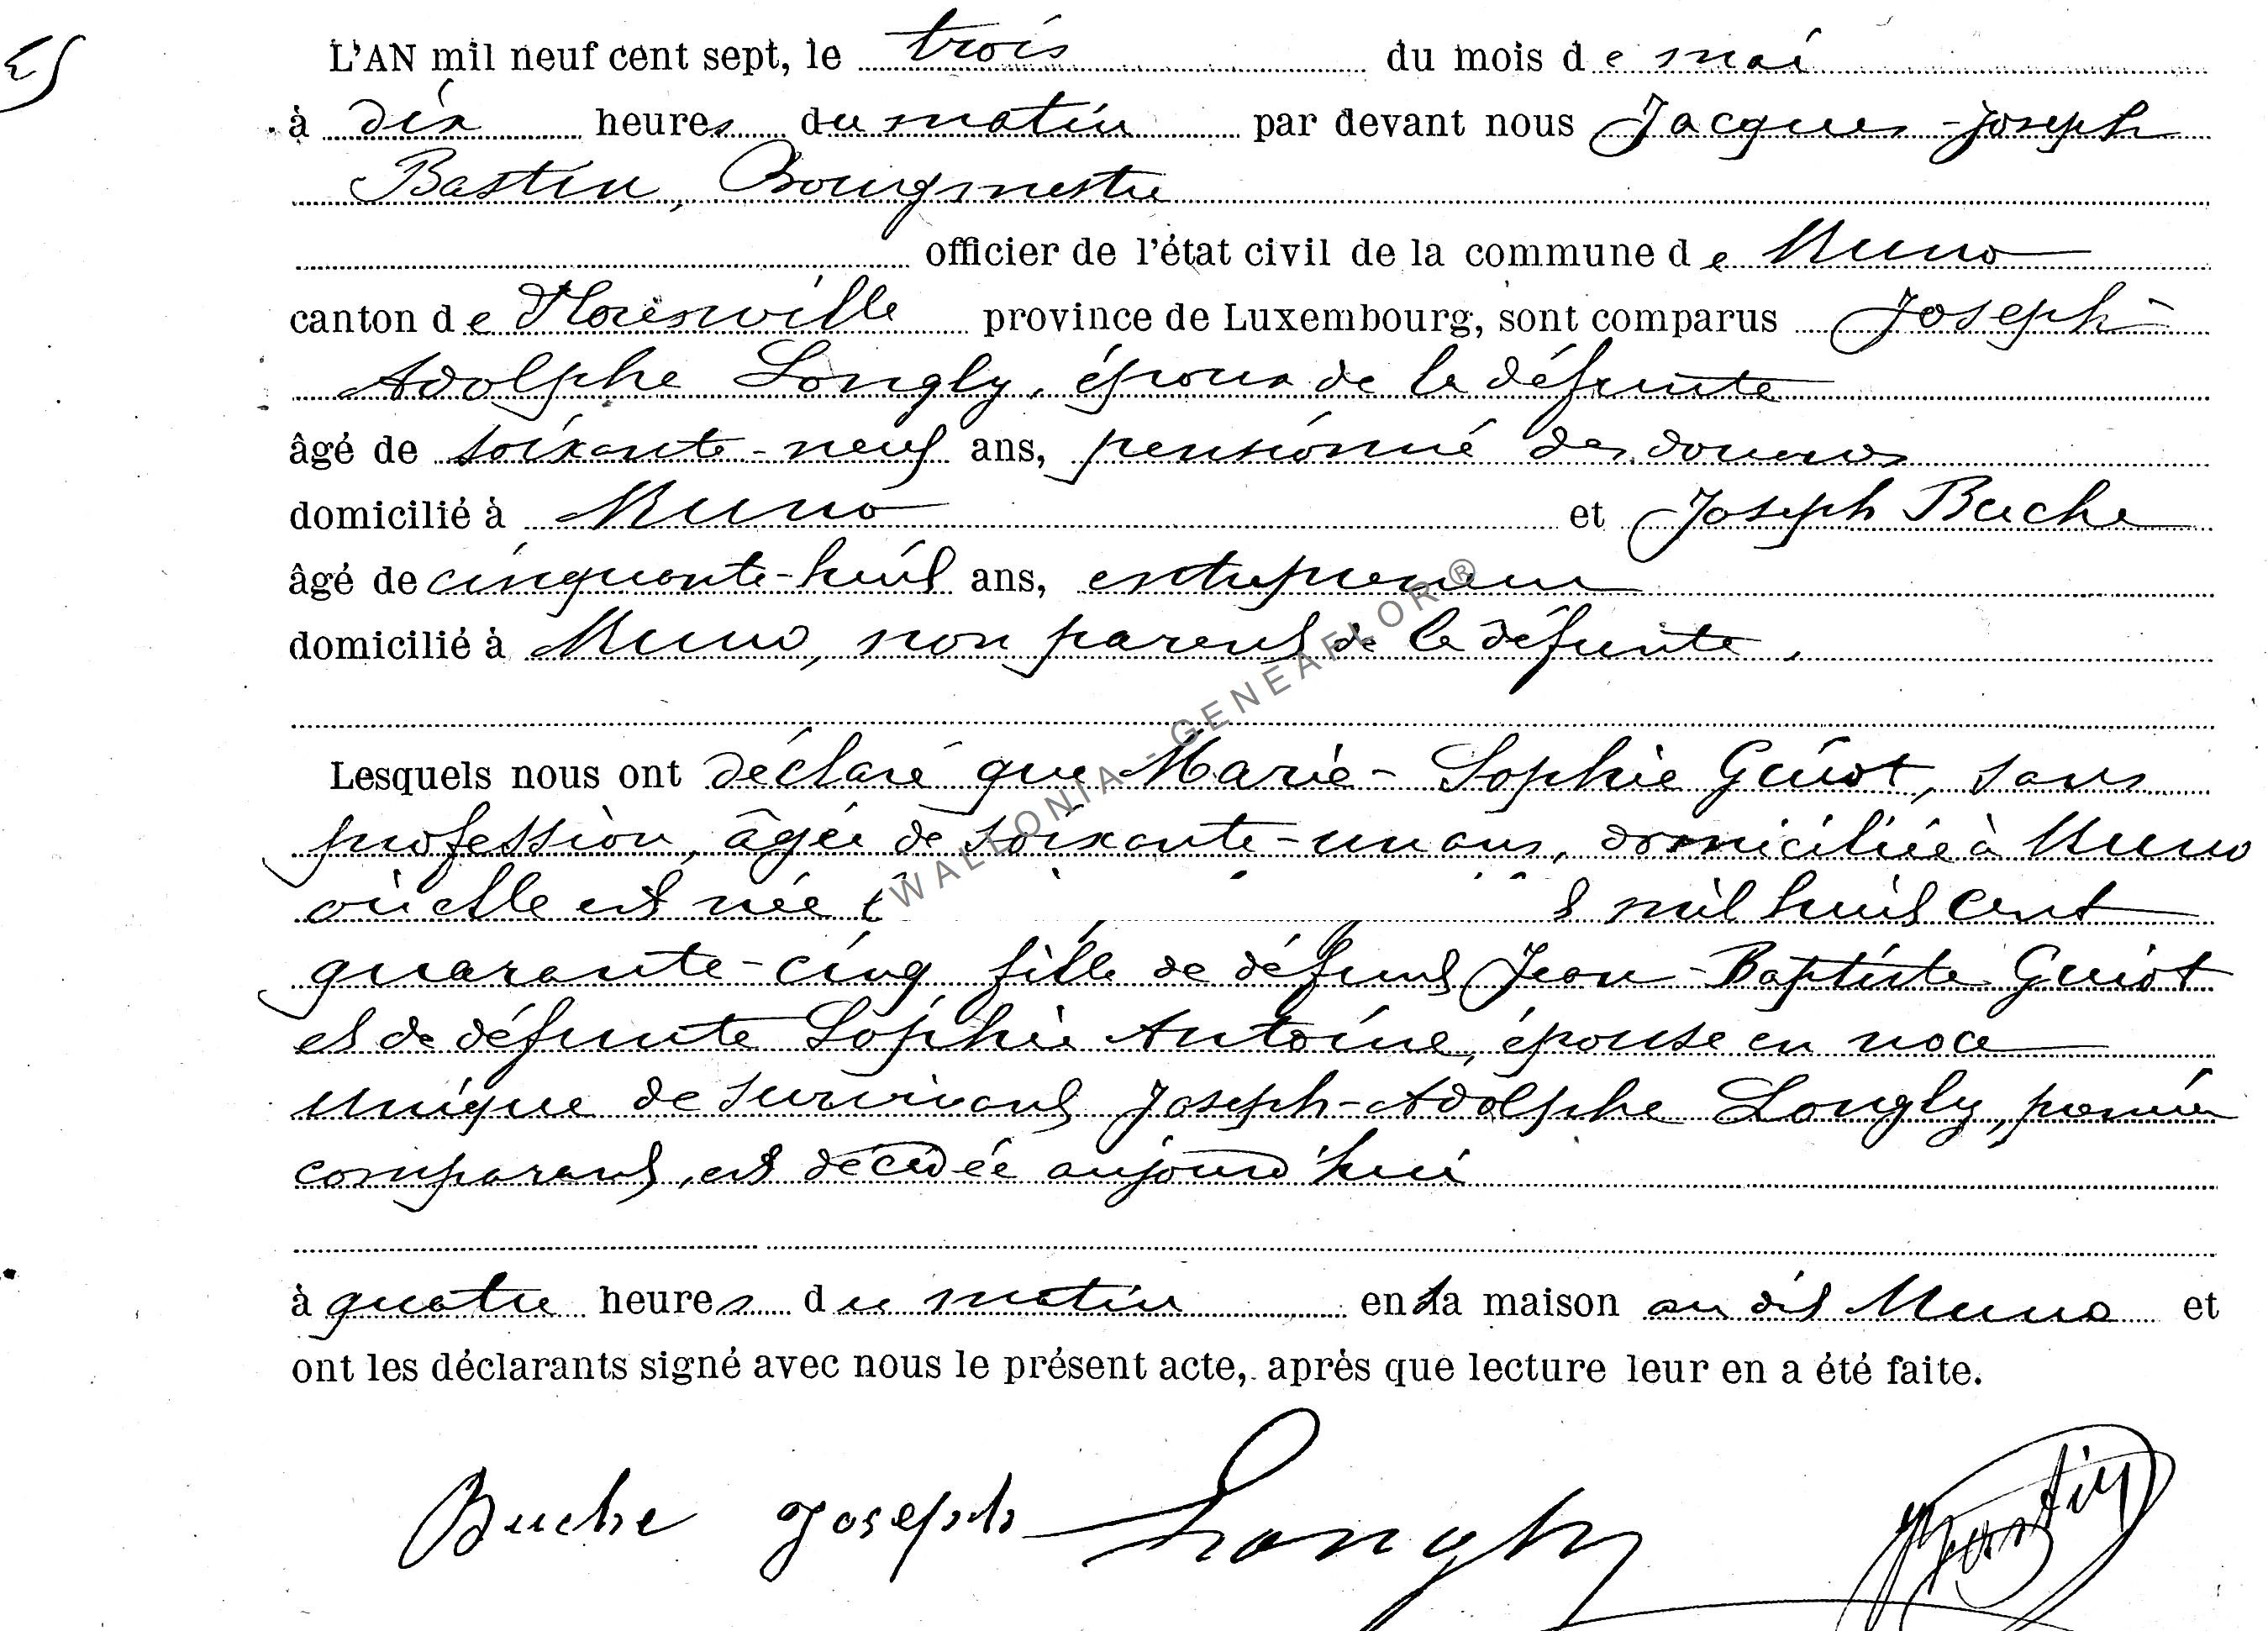 L'AN mil neuf cent sept, le trois du mois de mai
à dix heures du matin par devant nous Jacques-Joseph
Bastin, Bourgmestre
officier de l'état civil de la commune de Muno
canton de Florenville province de Luxembourg, sont comparus Joseph-
Adolphe Longly, époux de la défunte
âgé de soixante-neuf ans, pensionné des douanes
domicilié à Muno et Joseph Buche
âgé de cinquante-huit ans, entrepreneur
domicilié à Muno, non parent de la défunte.
Lesquels nous ont déclaré que Marie-Sophie Guiot, sans
profession, âgée de soixante-un ans, domiciliée à Muno
où elle est née mil huit cent
quarante-cinq, fille de défunt Jean-Baptiste Guiot
et de défunte Sophie Antoine, épouse en noce
unique de survivant Joseph-Adolphe Longly, premier
comparant, est décédée aujourd'hui
à quatre heures du matin en sa maison au dit Muno et
ont les déclarants signé avec nous le présent acte, après que lecture leur en a été faite.
Buche Joseph Longly Bastin
WALLONIA - GENEAFLOR®